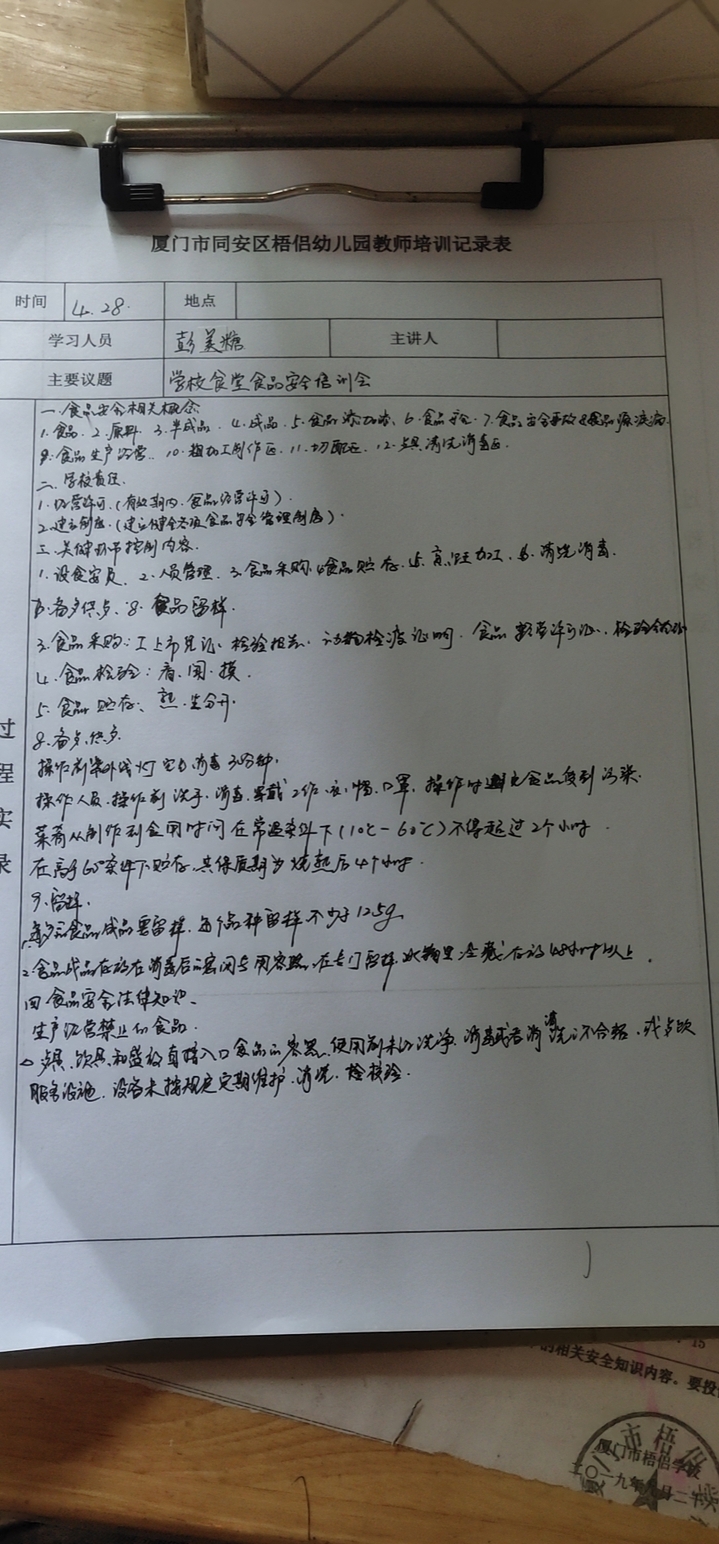 厦门市同安区梧侣幼儿园教师培训记录表
时间 4.28. 地点
学习人员 彭美糖 主讲人
主要议题 学校食堂食品安全培训会
过程实录
一.食品安全相关概念
1.食品 2.原料 3.半成品 4.成品 5.食品添加济 6.食品安全 7.食品安全事故 8食品源疾病
9.食品生产经营. 10.粗加工制作区. 11.切配区. 12.点具清洗消毒区.
二.学校责任.
1.经营许可.(有效期内.食品经营许可).
2.建立制度.(建立健全各项食品安全管理制度).
三.关键环节控制内容.
1.设食安员. 2.人员管理. 3.食品采购. 4食品贮存. 5.烹饪加工. 6.清洗消毒.
7.备歺供点. 8.食品留样.
3.食品采购:工上市凭证. 检验报告. 动物检疫证明. 食品经营许可证.
4.食品检验:看.闻.摸.
5.食品贮存、熟.生分开.
8.备点.供点.
操作前紫外线灯 消毒30分钟.
操作人员.操作前洗手.消毒.穿戴工作.衣.帽.口罩,操作时避免食品受到污染.
菜肴从制作到食用时间在常温条件下(10℃-60℃)不得超过2个小时.
在高于60°条件下贮存,其保质期为烧熟后4个小时.
9.留样.
食品成品要留样,每个品种留样不少于125g.
2.食品成品存放在消毒后 密闭专用容器,在专门留样冰箱里冷藏存放48小时以上.
四食品安全法律知识.
生产经营禁止的食品.
点具.饮具和盛放直接入口食品的容器.使用前未经洗净.消毒或者清洗 不合格,或点饮
服务设施.设备未按规定定期维护.清洗.检校验.
的相关安全知识内容。要投
厦门市梧侣学校